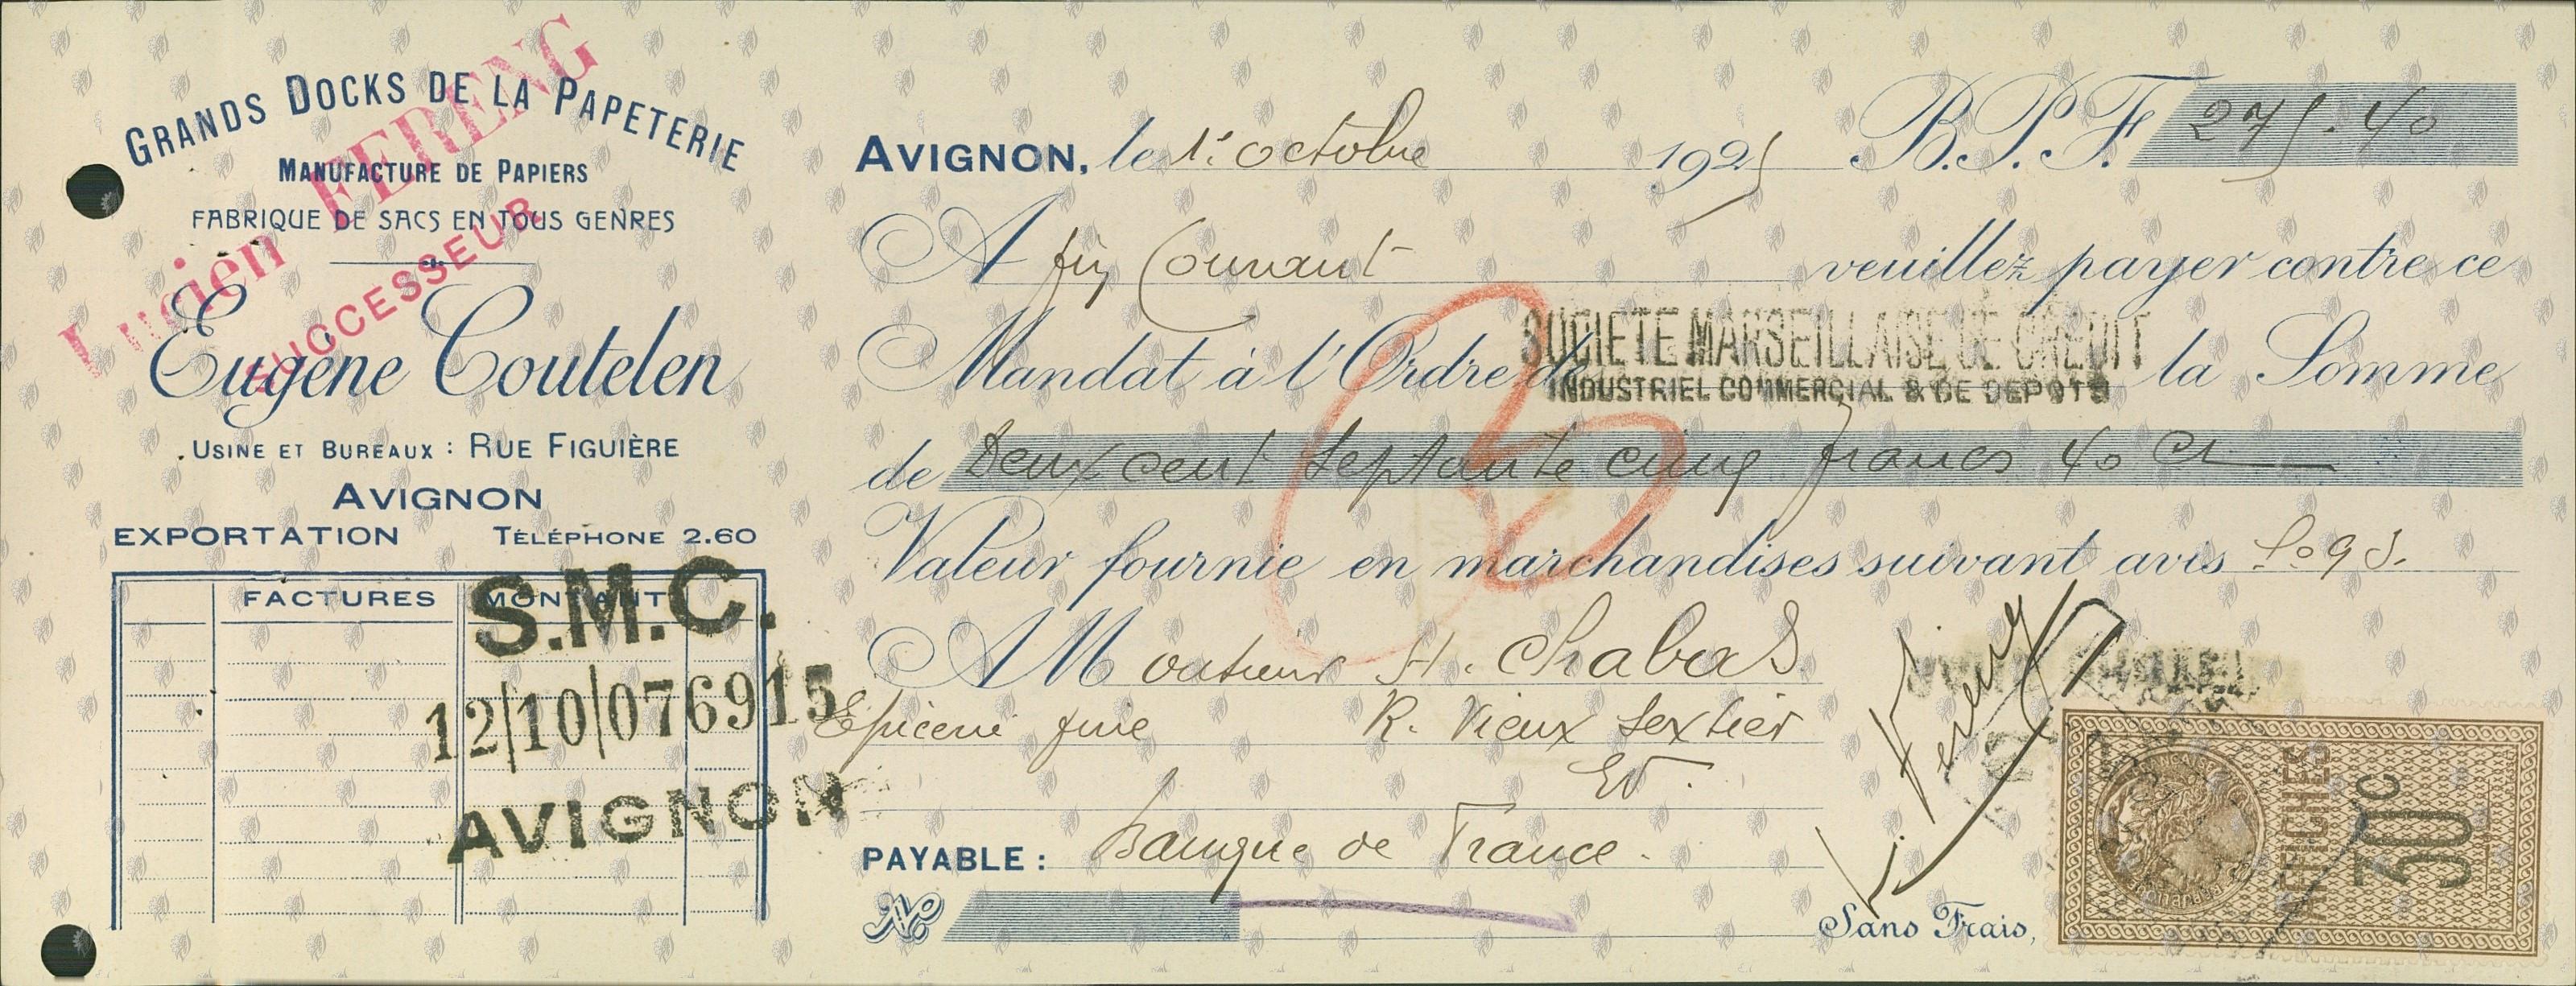 GRANDS DOCKS DE LA PAPETERIE
MANUFACTURE DE PAPIERS
FABRIQUE DE SACS EN TOUS GENRES
Lucien FERENG
SUCCESSEUR
Eugène Coutelen
USINE ET BUREAUX : RUE FIGUIÈRE
AVIGNON
EXPORTATION TÉLÉPHONE 2.60
FACTURES MONTANT
S.M.C.
12/10/076915
AVIGNON
AVIGNON, le 1r octobre 1925 B.P.F. 275.40
A fin Courant veuillez payer contre ce
Mandat à l'Ordre de SOCIETE MARSEILLAISE DE CREDIT la Somme
INDUSTRIEL COMMERCIAL & DE DEPOTS
de Deux cent septante cinq francs 40 Cs
Valeur fournie en marchandises suivant avis
A Monsieur H. Chabas
Epicerie fine R. Vieux Sextier
EV.
PAYABLE : Banque de France.
No
Sans Frais,
AFFICHES
30c